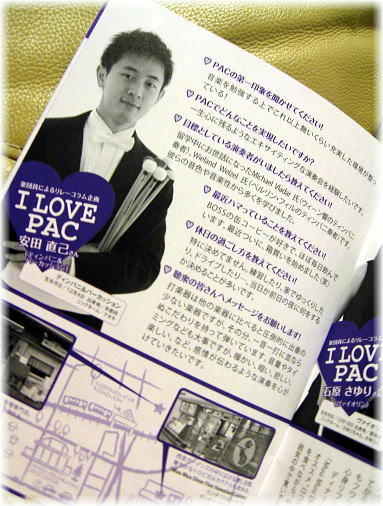 ♡PACの第一印象を聞かせてください！
音楽を勉強する上でこれ以上無いくらい充実した環境が整っ
ている！
♡PACでどんなことを実現したいですか？
一生心に残るようなエキサイティングな演奏会を経験したいです。
♡目標としている演奏者がいましたら教えてください！
留学中にお世話になったMichael Vladar氏(ウィーン響のティンパニ
奏者)、Wieland Welzel氏(ベルリン・フィルのティンパニ奏者)です。
彼らの音色や音楽性から多くを学びました。
♡最近ハマっていることを教えてください！
BOSSの缶コーヒーが好きで、ほぼ毎日飲んで
います。最近ついに、箱買いを始めました(笑)
♡休日の過ごし方を教えてください！
特に決めてません。練習したり、家でゆっくりした
り、ドライブしたり…、当日か前日の夜に何をする
か決めることが多いです。
♡聴衆の皆さんへメッセージをお願いします！
打楽器は他の楽器に比べると圧倒的に出番の
少ない楽器ですが、その分、一音一打に並なら
ぬこだわりを持って弾いています。音量やタイ
ミングなども大事ですが、暖かい、暗い、悲しい、
楽しい、など、感情が伝わるような演奏を心が
けていきたいです。
楽団員によるリレーコラム企画
I LOVE
PAC
安田 直己さん
(ティンパニ&
パーカッション)
ティンパニ&パーカッション
楽団員によるリレーコラム
I LOVE
PAC
石原 さゆり
(ヴァイオリン)